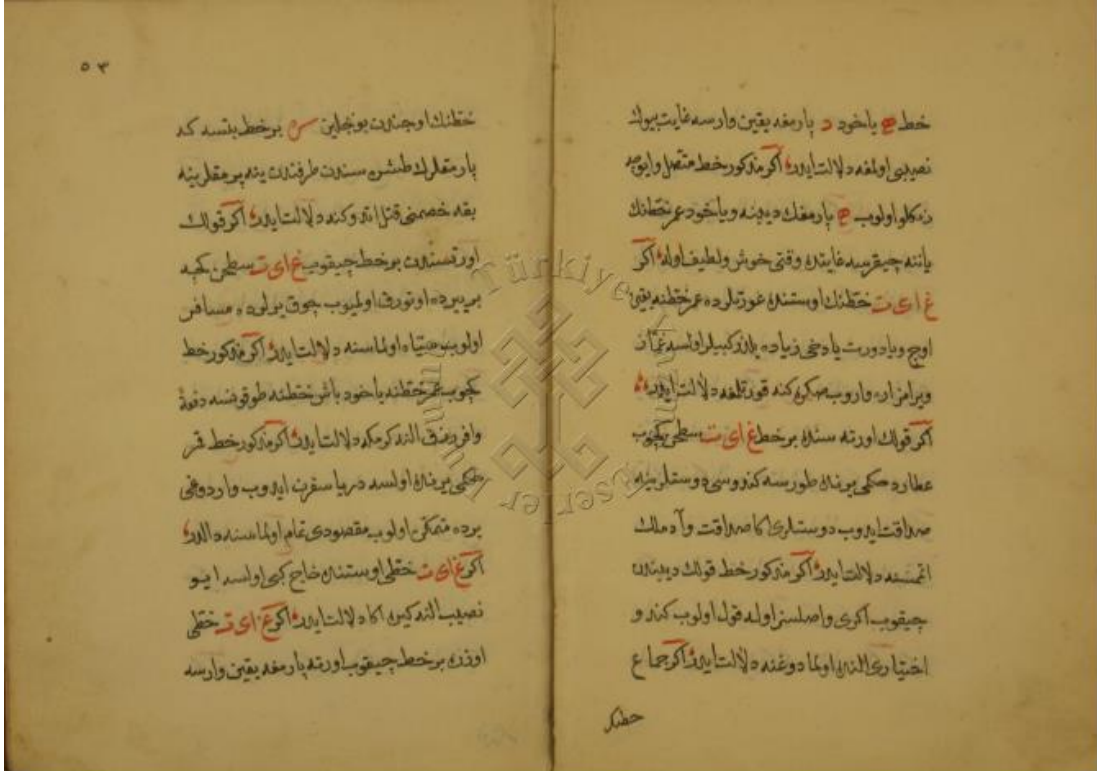 خط ه یاخود د پارمغه یقین وارسه غایت بیوك
نصیبی اولمغه دلالت ایدر اکر مذکور خط متصل و ایو
رنکلو اولوب ه پارمغك دیبنه و یاخود عمر خطنك
یاننه چیقرسه غایتده وقتی خوش و لطیف اوله اکر
غ ا ی ت خطنك اوستنده عورتلرده عمر خطنه یقین
اوچ و یا دورت یا دخی زیاده یلدز کبیلر اولسه غماز
ویرامزاده واروب صکره کند قورتلغه دلالت ایدر
اکر قولك اورته سنده بر خط غ ا ی ت سطحی کچوب
عطارد حکمی یرنده طورسه کندوسی دوستلرینه
صداقت ایدوب دوستلری اکا صداقت و آدملك
اتمسنه دلالت ایدر اکر مذکور خط قولك دیبندن
چیقوب اکری و اصلسز اوله قول اولوب کندو
اختیاری النده اولمادوغنه دلالت ایدر اکر جماع
خطنك
٥٣
خطنك اوجندن بونجلین س بر خط بتسه که
پارمقلرك طشره سندن طرفندن ینه پرمقلرینه
بقه خصمنی قتل اتدوکنه دلالت ایدر اکر قولك
اورتسندن بر خط چیقوب غ ا ی ت سطحن کچه
بر یرده اوتورق اولمیوب چوق یولورده مسافر
اولوب سیاه اولماسنه دلالت ایدر اکر مذکور خط
کچوب عمر خطنه یاخود باش خطنه طوقونسه دفعة
وافر رزق النه کرمکه دلالت ایدر اکر مذکور خط قمر
حکمی یرنده اولسه دریا سفرن ایدوب واردوغی
یرده متمکن اولوب مقصودی تمام اولماسنه دالدر
اکر غ ا ی ت خطی اوستنده خاج کبی اولسه ایو
نصیب النه کیره اکا دلالت ایدر اکر غ ا ی ت خطی
اوزره بر خط چیقوب اورته پارمغه یقین وارسه
Türkiye Yazma Eserler Kurumu